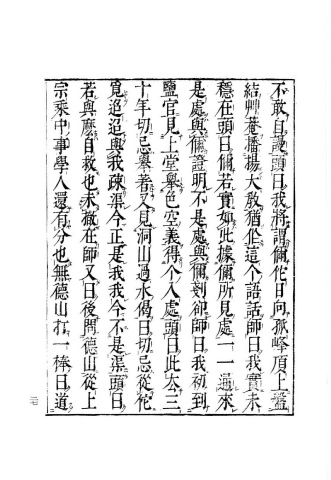 不敢自謾頭曰我將謂儞佗日向孤峰頂上盤
結艸菴播揚大敎猶作這个語話師曰我實未
穩在頭曰儞若實如此據儞所見處一一通來
是處與儞證明不是處與儞剗卻師曰我初到
鹽官見上堂舉色空義得个入處頭曰此去三
十年切忌舉著又見洞山過水偈曰切忌從佗
覓迢迢與我疎渠今正是我我今不是渠頭曰
若與麽自救也未徹在師又曰後問德山從上
宗乘中事學人還有分也無德山打一棒曰道